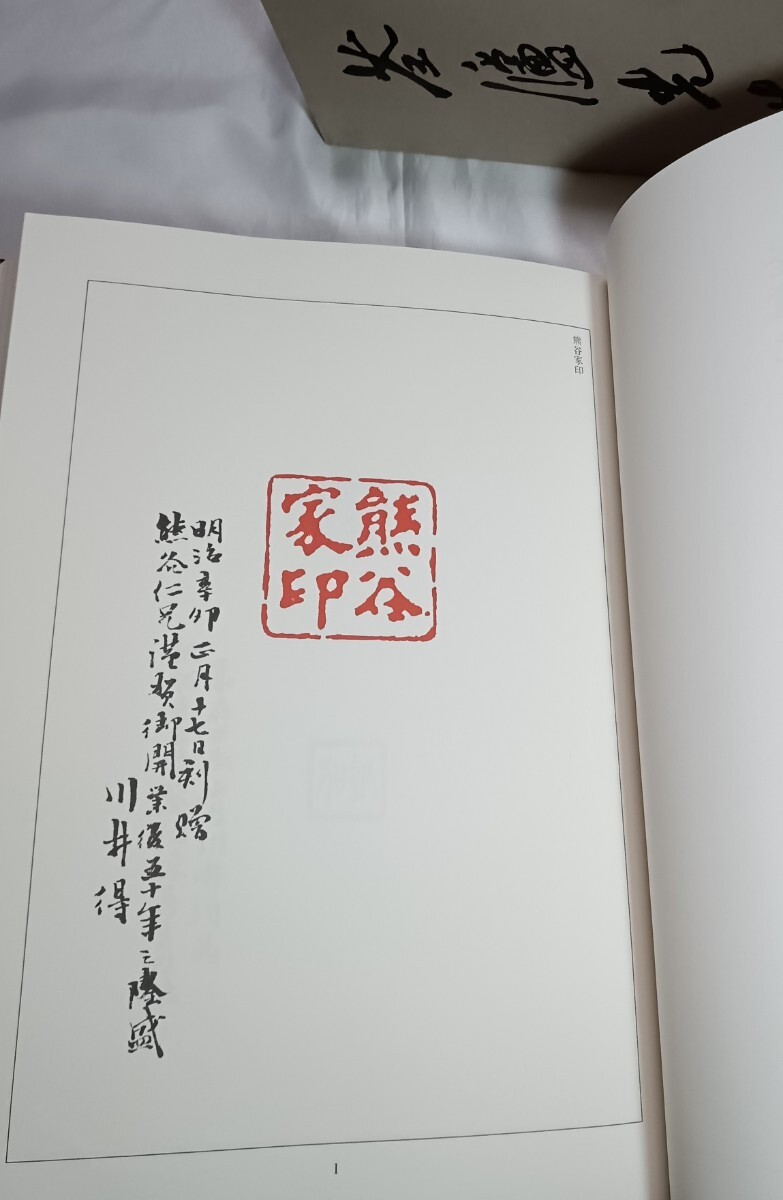 熊谷家印
熊谷
家印
明治辛卯正月十七日刻贈
熊谷仁兄謹賀御開業後五十年之隆盛
川井得
1